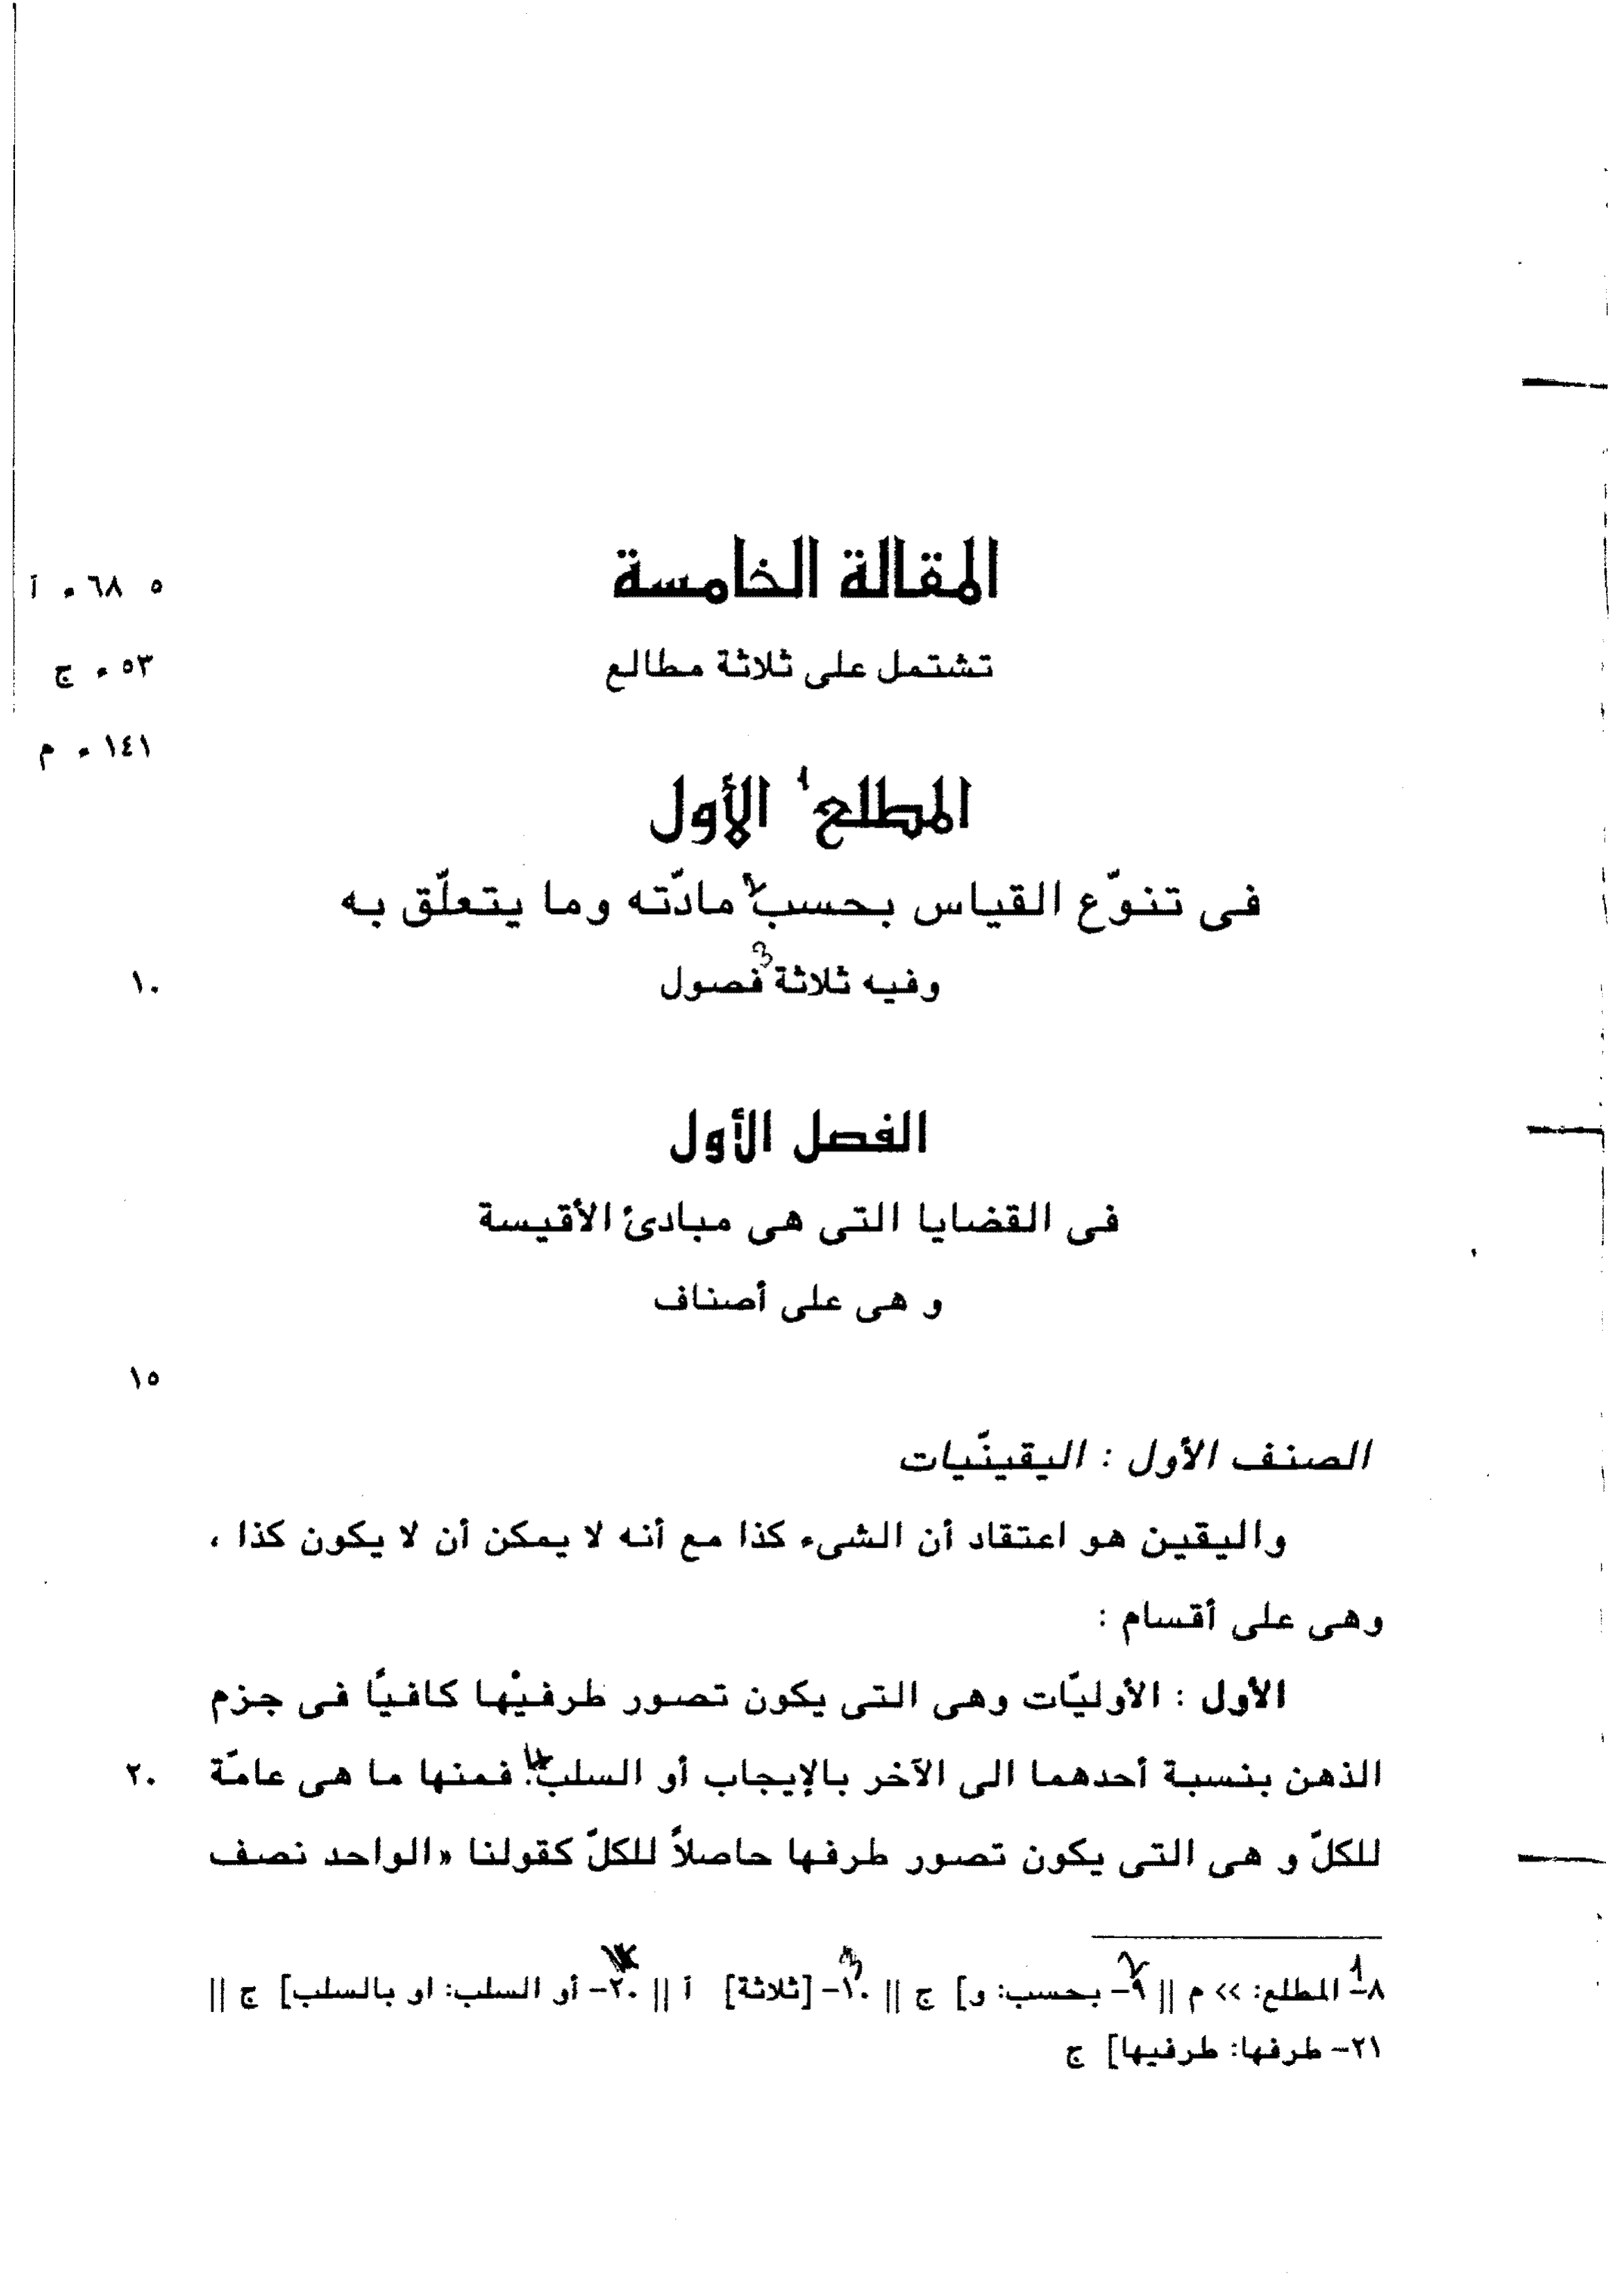 المقالة الخامسة
٥ ٦٨ء أ
تشتمل على ثلاثة مطالع
٥٣ء ج
١٤١ء م
المطلع١ الأول
فى تنوّع القياس بحسب٢ مادّته وما يتعلّق به
وفيه ثلاثة3 فصول
١٠
الفصل الأول
فى القضايا التى هى مبادئ الأقيسة
و هى على أصناف
١٥
الصنف الأول : اليقينّيات
واليقين هو اعتقاد أن الشىء كذا مع أنه لا يمكن أن لا يكون كذا ،
وهى على أقسام :
الأول : الأوليّات وهى التى يكون تصور طرفيْها كافيًا فى جزم
الذهن بنسبة أحدهما الى الآخر بالإيجاب أو السلب. فمنها ما هى عامّة ٢٠
للكلّ و هى التى يكون تصور طرفها حاصلاً للكلّ كقولنا «الواحد نصف
٨- المطلع: >> م || ٩- بحسب: و] ج || ١٠- [ثلاثة] أ || ٢٠- أو السلب: او بالسلب] ج ||
٢١- طرفها: طرفيها] ج